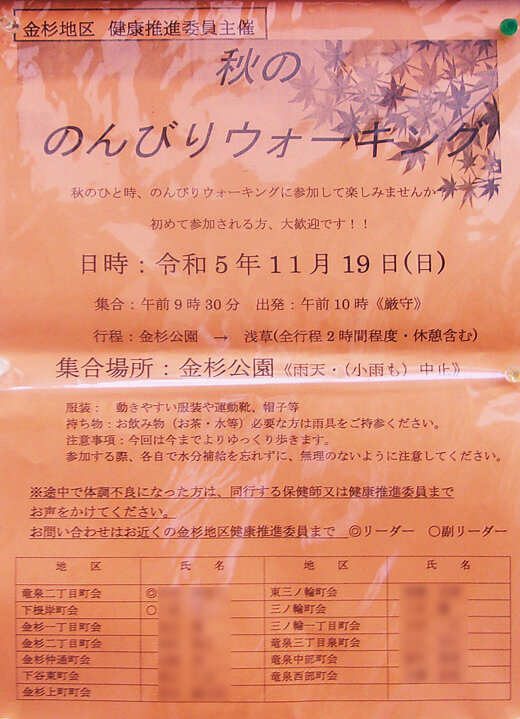 金杉地区 健康推進委員主催
秋の
のんびりウォーキング
秋のひと時、のんびりウォーキングに参加して楽しみませんか
初めて参加される方、大歓迎です！！
日時：令和5年11月19日(日)
集合：午前9時30分 出発：午前10時《厳守》
行程：金杉公園 → 浅草(全行程2時間程度・休憩含む)
集合場所：金杉公園《雨天・（小雨も）中止》
服装： 動きやすい服装や運動靴、帽子等
持ち物：お飲み物（お茶・水等）必要な方は雨具をご持参ください。
注意事項：今回は今までよりゆっくり歩きます。
参加する際、各自で水分補給を忘れずに、無理のないように注意してください。
※途中で体調不良になった方は、同行する保健師又は健康推進委員まで
お声をかけてください。
お問い合わせはお近くの金杉地区健康推進委員まで ◎リーダー ○副リーダー
地 区 氏 名 地 区 氏 名
竜泉二丁目町会 ◎ 東三ノ輪町会
下根岸町会 ○ 三ノ輪町会
金杉一丁目町会 三ノ輪一丁目町会
金杉二丁目町会 竜泉三丁目泉町会
金杉仲通町会 竜泉中部町会
下谷東町会 竜泉西部町会
金杉上町町会